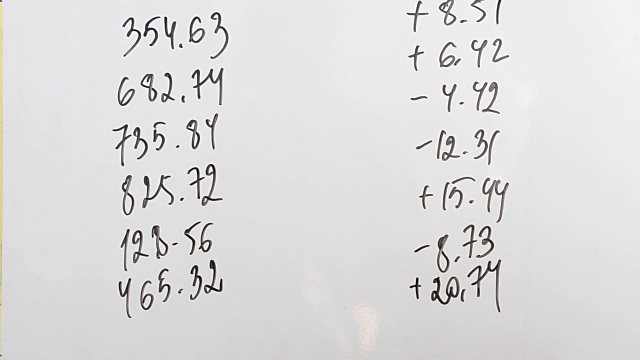 354.63 + 8.51
682.74 + 6.42
735.84 - 4.42
825.72 - 12.31
128.56 + 15.44
465.32 - 8.73
+ 20.74